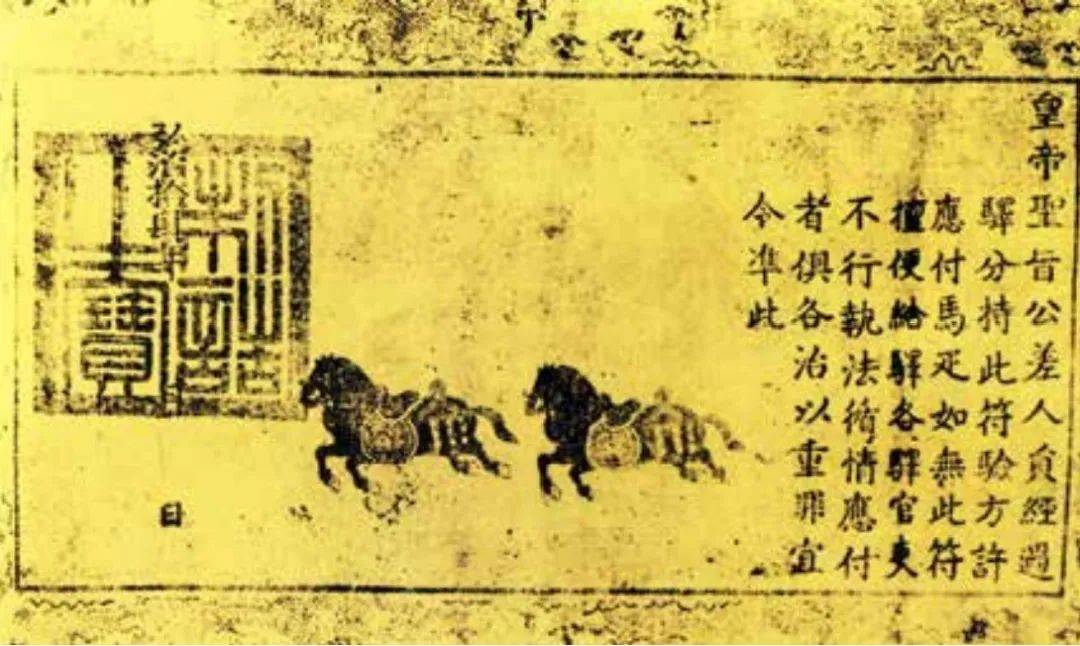 皇帝聖旨公差人貟經過
驛分持此符驗方許
應付馬疋如無此符
擅便給驛各驛官吏
不行執法循情應付
者俱各治以重罪宜
令凖此
弘治拾肆年 日
制誥之寶